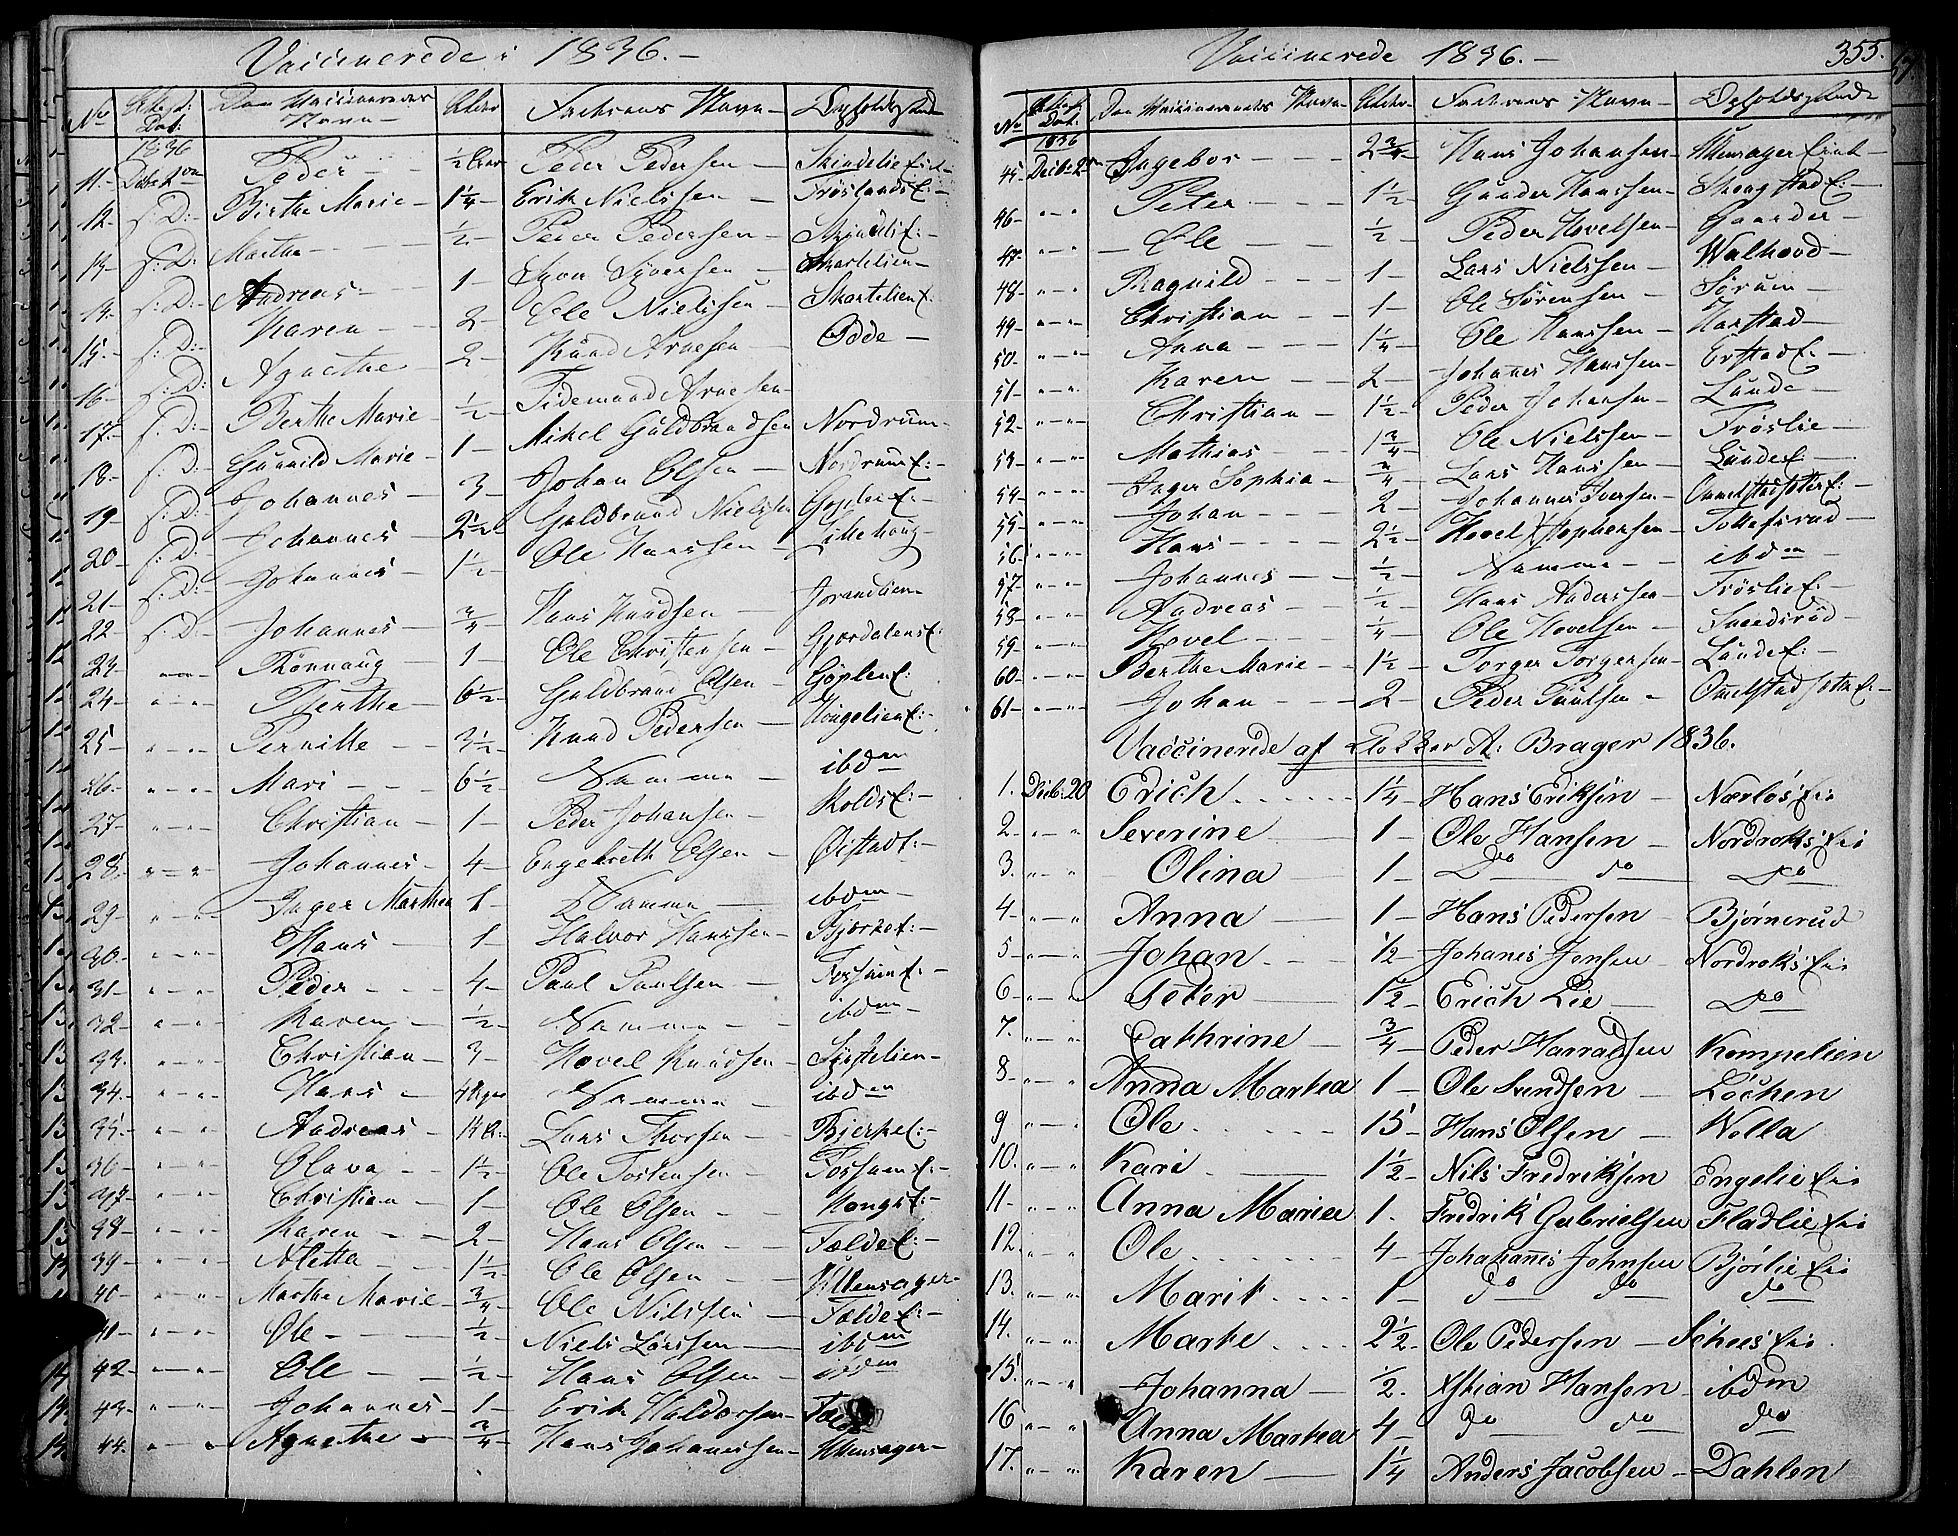 Vaccinerede i 1836.-
No Attest: Dat: Den Vaccineredes Navn Alder Faderens Navn Opholdsstæd
1836
11- Peder ½ Peder Pedersen -
12- s: D: Birthe Marie - 1¼ Erik Nielsen -
13- s: D: Marthe ½ Peder Pedersen -
14- s: D: Andreas 1- Syversen - Skartelien-
15- s: D: Karen 2- Ole Nielsen Skartelien E:
16- s: D: Agnethe 2- Knud Arnesen - Odde -
17- s: D: Berthe Marie - ½ Tidemand Arnesen-
18- s: D: Gunnild Marie - 1- Mikel Guldbrandsen Nordrum-
19- s: D: Johannes - 3- Johan Olsen - Nordrum E:-
20- s: D: Johannes - 2½ Guldbrand Nielsen E:-
21- s: D: Johannes - 1½ Ole Hanssen - Lillehaug-
22- s: D: Johannes - ¾ Hans Knudsen - Jorandlien-
23- Rønnaug - 1- Ole Christensen - Gjordalens E:
24- Berthe - 6½ Guldbrand Olsen - Gøplen E:
25- Pernille 3½ Knud Pedersen -
26- Mari - 6½ Samme - ibdm
27- Christian - 1- Peder Johansen - Kolds E:-
28- Johannes - 4- Engebreth Olsen - Østad E:-
29- Inger Marthea 1- Samme ibdm -
30- Hans - 1- Halvor Hanssen - Bjerke E:-
31- Peder - 4- Paul Paulsen - Fossum E:-
32- Karen - ½ Samme - ibdm -
33- Christian - 3- Hovel Knudsen -
34- Hans - Samme - ibdm
35- Andreas - Lars Thorsen - Bjerke E:-
36- Olava - 1½ Ole Tostensen - Fossum E:-
37- Christian - 1- Ole Olsen - Hougs E:-
38- Karen - 2- Hans Olsen - Fælde E:-
39- Aletta - 1½ Ole Olsen - Ullensager-
40- Marthe Marie - ¾ Ole Nilssen - Fælde E:-
41- Ole - ½ Niels Larssen - ibdm
42- Ole - ½ Hans Olsen - ibdm
43- Johannes - 1- Erik Haldorsen-
44- Agnethe - ¾ Hans Johannessen - Ullensager-
Vaccinerede 1836.- 355.
No Attest Dat: Den Vaccineredes Navn - Alder Faderens Navn - Opholdsstæde
1836
45- Decb: 2n Ingebor - 2¾ Hans Johansen - Ullensager
46- Peter 1½- Gunder Hanssen - E:-
47- Ole ½- Peder Hovelsen - Gaarder -
48- Ragnild 1- Lars Nielssen - Walhovd -
49- Christian - 1- Ole Sørensen - Sørum -
50- Anna 1¼- Ole Hanssen - Harstad -
51- Karen 2- Johannes Hanssen - E:-
52- Christian - 1½- Peder Johansen - Lunde -
53- Mathias - 1¾ Ole Nielssen - Frøslie -
54- Inger Sophia - ¾ Lars Hanssen - Lunde E:-
55- Johan 2- Johannes Iversen -
56- Hans 2½- Hovel Stophersen - Tollefsrud -
57- Johannes ½- Samme - ibdm
58- Andreas ½- Hans Anderssen - Frøslie E:-
59- Hovel ¼- Ole Hovelsen -
60- Berthe Marie - 1½- Torger Torgersen - Lunde E:-
61- Johan 2- Peder Paulsen -
Vaccinerede af Klokker A: Brager 1836.
1. Decb: 20 Erich 1¼ - Hans Eriksen - Nærløs Eie
2- Severine 1- Ole Hansen - Nordroks Eie
3. Olina 1- Do do Do
4- Anna 1- Hans Pedersen - Bjørnerud
5- Johan ½ Johanes Jensen - Nordroks Eie
6- Peter 1½- Erich Lie - Do
7. Cathrine ¾- Peder Harradsen Kompelien
8- Anna Marthea 1- Ole Svendsen Løchen
9 Ole 15- Hans Olsen - Wolla
10. Kari 1½- Nils Fredriksen Engelie Eie
11- Anna Mariea 1. Fredrik Gabrielsen Fladlie Eie
12 Ole 4- Johahannes Johnsen Bjørlie Eie
13. Marit 1- do do do
14. Marte 2½. Ole Pedersen - Schees Eie.
15. Johanna - ½. Xstian Hansen - ibdm
16 Anna Marthea 4- do do do
17. Karen 1¼ Anders Jacobsen - Dahlen